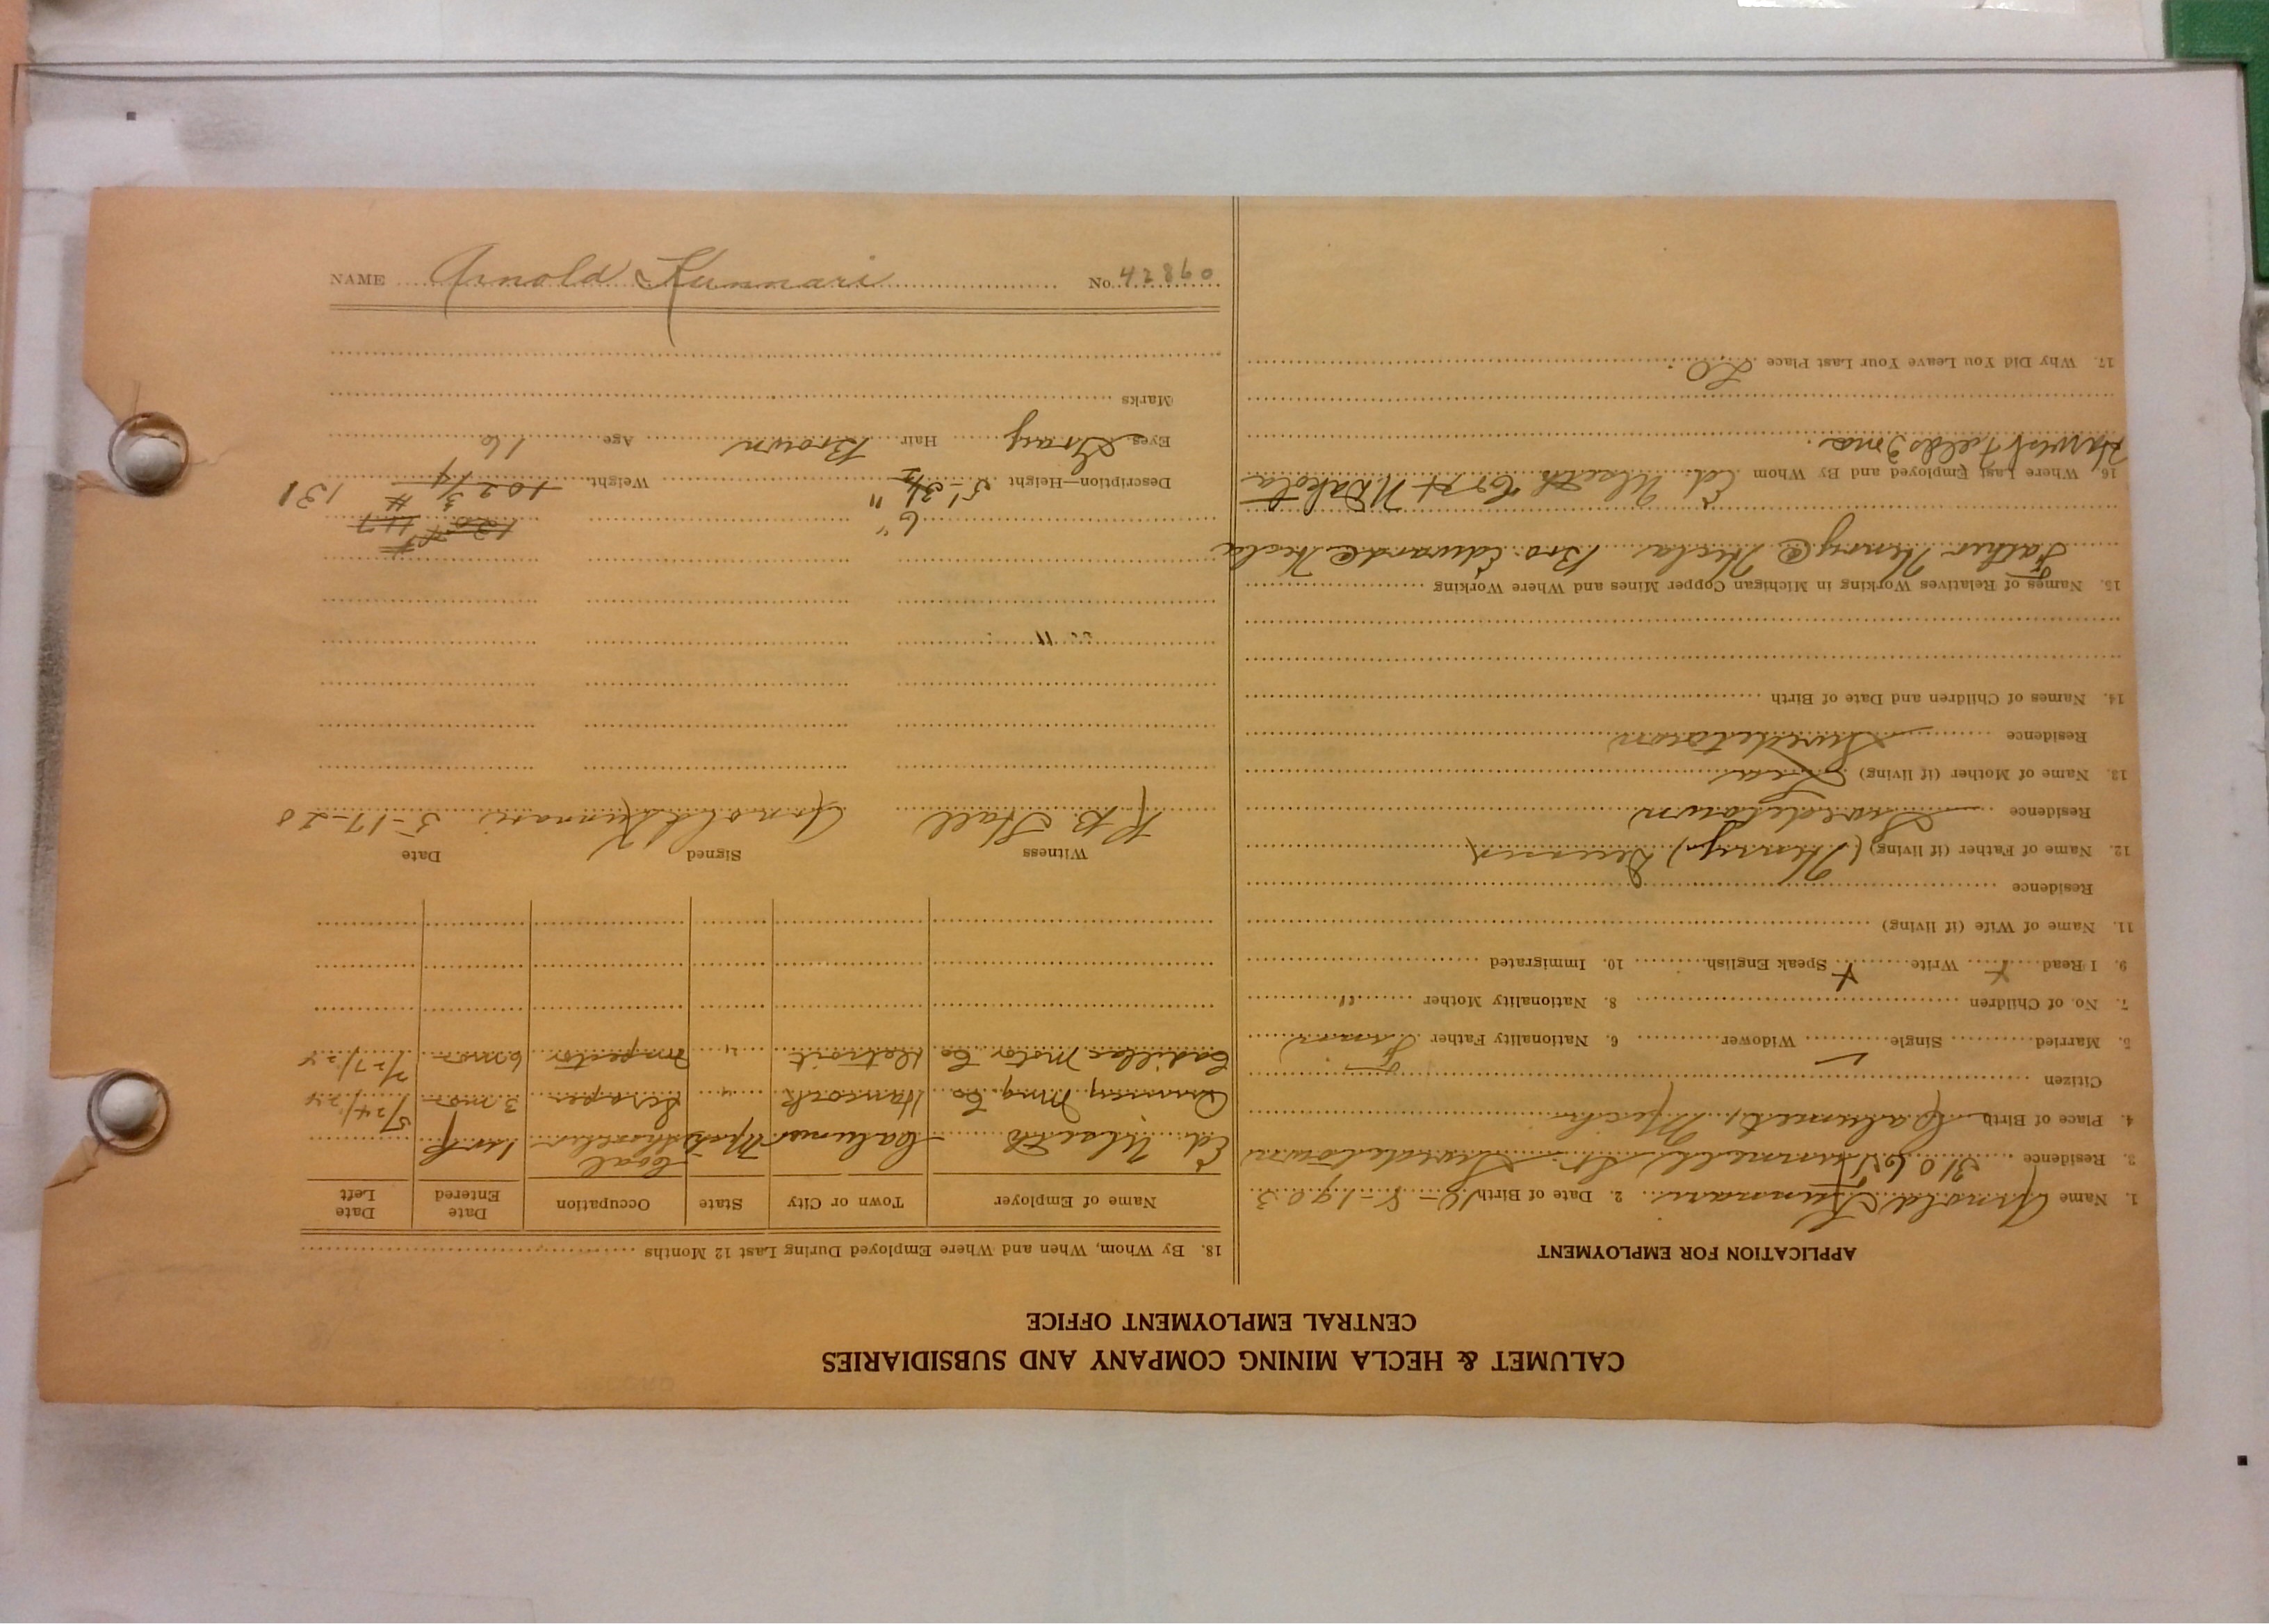 CALUMET & HECLA MINING COMPANY AND SUBSIDIARIES
CENTRAL EMPLOYMENT OFFICE
APPLICATION FOR EMPLOYMENT
1. Name Arnold Kunnari 2. Date of Birth 10-8-1903
3106
2. Residence St. Swedetown
4. Place of Birth Calumet, Mich
Citizen
5. Married Single Widower 6. Nationality Father Finn
7. No. of Children 8. Nationality Mother "
9. I Read x Write Speak English x 10. Immigrated
11. Name of Wife (if living)
Residence
12. Name of Father (if living) (Henry) Deceased
Residence Swedetown
13. Name of Mother (if living)
Residence Swedetown
14. Names of Children and Date of Birth
15. Names of Relatives Working in Michigan Copper Mines and Where Working
Father Henry @ Hecla Bro. Edward @ Hecla
16. Where Last Employed and By Whom Ed. Ulseth Co N. Dakota
Harvest Fields 3 mos.
17. Why Did You Leave Your Last Place LO.
18. By Whom, When and Where Employed During Last 12 Months
Name of Employer Town or City State Occupation Date Entered Date Left
Ed. Ulseth Calumet Mich Coal
Quincy Mng. Co Hancock " Scraper 3 mos 5/24/24
Cadillac Motor Co Detroit " Inspector 6 mos 7/27/24
Witness Signed Date
R B Hall Arnold Kunnari 5-17-20
" "
6"
120 # 117 #
Description—Height 5'-3½" Weight 102¾ 131
Eyes Gray Hair Brown Age 16
Marks
NAME Arnold Kunnari No. 42860